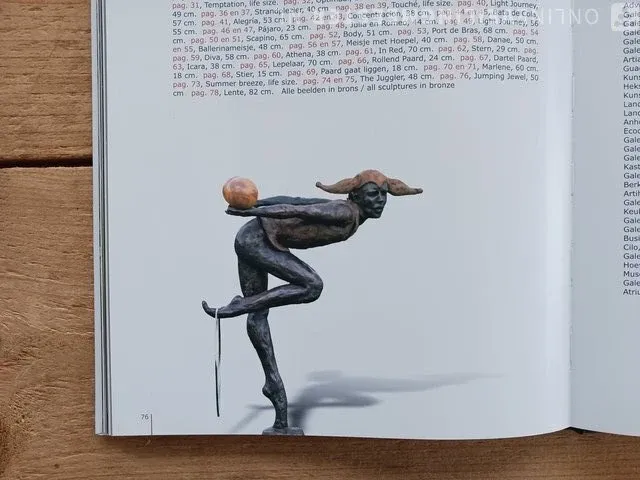 ONLIN
pag. 31, Temptation, life size. pag. 32,
49 cm. pag. 36 en 37, 40 cm. pag. 38 en 39, Touché, life size. pag. 40, Light Journey,
57 cm. pag. 41, Alegría, 53 cm. Concentración, 38 cm. de Cola,
55 cm. pag. 46 en 47, Pájaro, 23 cm. pag. 48, Julia en Romeo, 49, Journey, 56
cm. pag. 50 en 51, Scapino, 65 cm. pag. 52, Body, 51 cm. pag. 53, Port de Bras, 68 cm. pag. 54
en 55, Ballerinameisje, 48 cm. pag. 56 en 57, Meisje met Hoepel, 40 cm. pag. 58, Danae, 50 cm.
pag. 59, Diva, 58 cm. pag. 60, Athena, 38 cm. pag. 61, In Red, 70 cm. pag. 62, Stern, 29 cm. pag.
63, Icara, 38 cm. pag. 65, Lepelaar, 70 cm. pag. 66, Rollend Paard, 24 cm. pag. 67, Dartel Paard,
18 cm. pag. 68, Stier, 15 cm. pag. 69, Paard gaat liggen, 18 cm. pag. 70 en 71, Marlene, 60 cm.
pag. 73, Summer breeze, life size. pag. 74 en 75, The Juggler, 48 cm. pag. 76, Jumping Jewel, 50
cm. pag. 78, Lente, 82 cm. Alle beelden in brons / all sculptures in bronze
76
Adv
Gale
Kuns
Gale
Gale
Artia
Gua
Kuns
Heks
Kuns
Lanc
Lanc
Anh
Ecoc
Gale
Gale
Gale
Kast
Gale
Berk
Artih
Gale
Keul
Gale
Gale
Busi
Cilo,
Gale
Hoes
Muse
Gale
Atriu